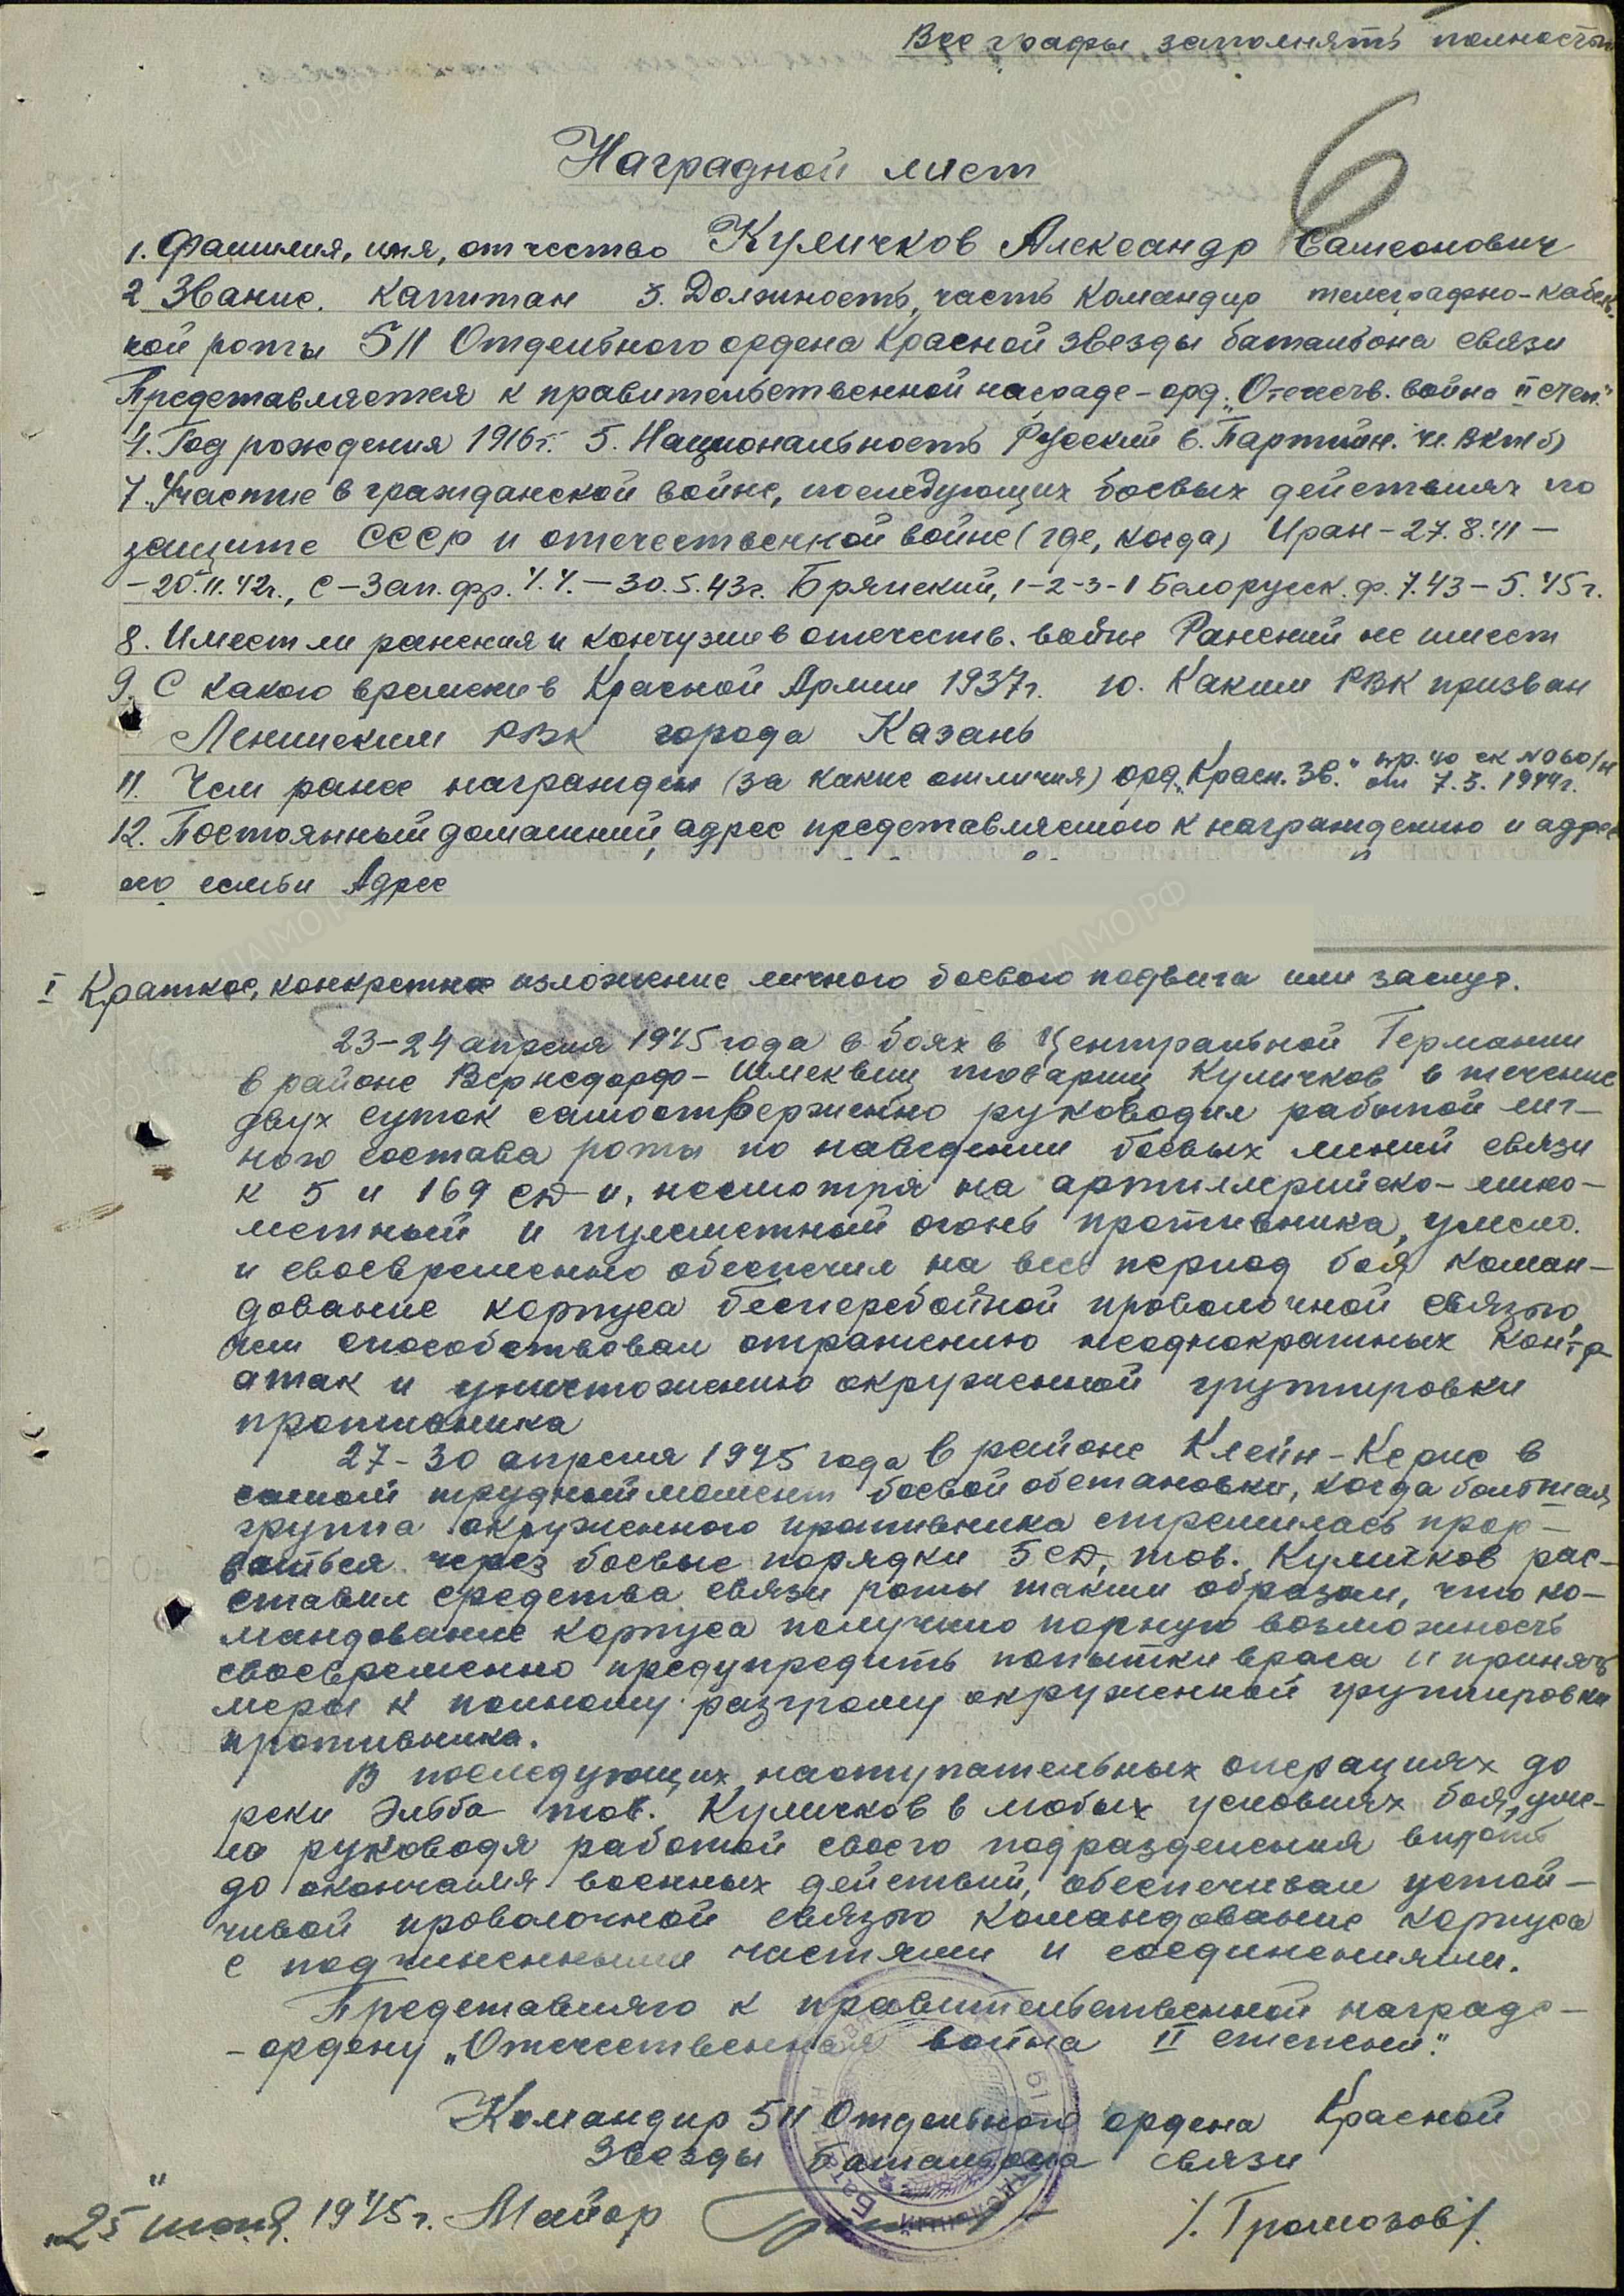 Все графы заполнять полностью
6
Наградной лист
1. Фамилия, имя, отчество Куличков Александр Самсонович
2 Звание. Капитан 3. Должность, часть Командир телеграфно-кабель-
ной роты 511 Отдельного ордена Красной Звезды батальона связи
Представляется к правительственной награде – орд. „Отечеств. война II степ."
4. Год рождения 1916 г. 5. Национальность Русский 6. Партийн. чл. ВКП(б)
7. Участие в гражданской войне, последующих боевых действиях по
защите СССР и отечественной войне (где, когда) Иран – 27.8.41 –
– 20.11.42г., С-Зап. фр. – 30.5.43г. Брянский, 1-2-3-1 Белорусск. ф. 7.43 – 5.45г.
8. Имеет ли ранения и контузии в отечеств. войне Ранений не имеет
9. С какого времени в Красной Армии 1937г. 10. Каким РВК призван
Ленинским РВК города Казань
11. Чем ранее награжден (за какие отличия) орд. „Красн. Зв." пр. 40 ск №060/н
от 7.3.1944г.
12. Постоянный домашний адрес представляемого к награждению и адрес
его семьи Адрес
I Краткое, конкретное изложение личного боевого подвига или заслуг.
23-24 апреля 1945 года в боях в Центральной Германии
в районе Вернсдорф – Шмеквиц товарищ Куличков в течение
двух суток самоотверженно руководил работой лич-
ного состава роты по наведении боевых линий связи
к 5 и 169 СД и, несмотря на артиллерийско-мино-
метный и пулеметный огонь противника, умело
и своевременно обеспечил на весь период боя коман-
дование корпуса бесперебойной проволочной связью,
чем способствовал отражению неоднократных контр-
атак и уничтожению окруженной группировки
противника
27-30 апреля 1945 года в районе Клейн-Керис в
самый трудный момент боевой обстановки, когда большая
группа окруженного противника стремилась прор-
ваться через боевые порядки 5 СД, тов. Куличков рас-
ставил средства связи роты таким образом, что ко-
мандование корпуса получило полную возможность
своевременно предупредить попытки врага и принять
меры к полному разгрому окруженной группировки
противника.
В последующих наступательных операциях до
реки Эльба тов. Куличков в любых условиях боя, уме-
ло руководя работой своего подразделения вплоть
до окончания военных действий, обеспечивал устой-
чивой проволочной связью командование корпуса
с подчиненными частями и соединениями.
Представляю к правительственной награде –
– ордену „Отечественная война II степени".
Командир 511 Отдельного ордена Красной
Звезды батальона связи
„25" июня 1945г. Майор /Громозов/